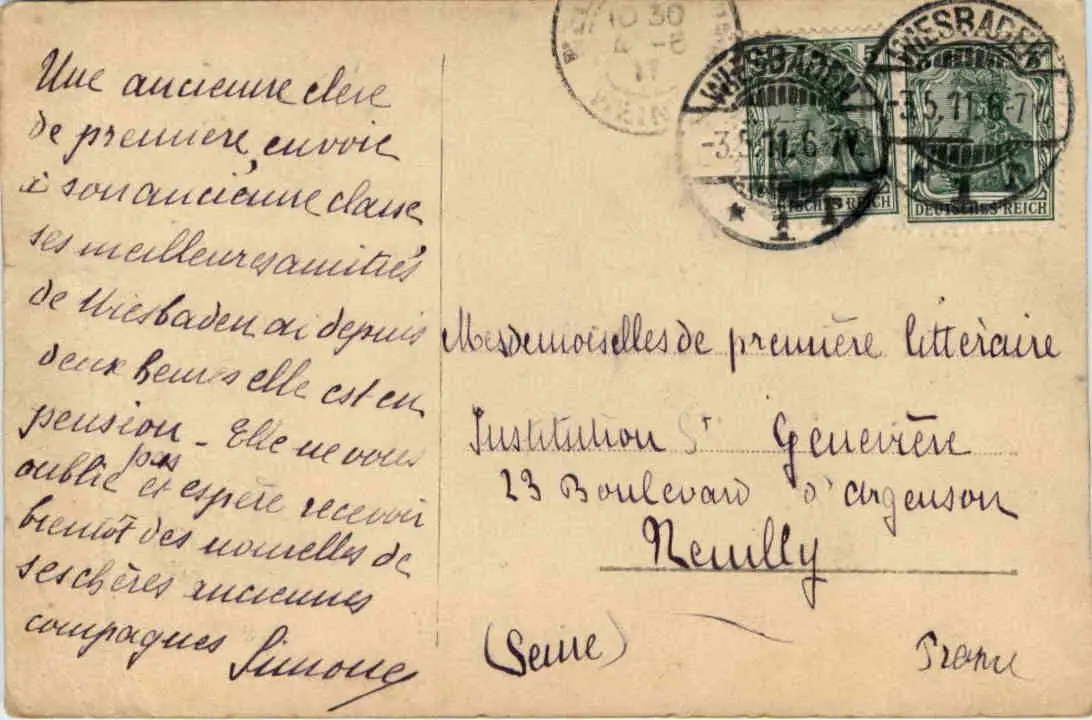 Une ancienne élève
de première, envoie
à son ancienne classe
ses meilleures amitiés
de Wiesbaden où depuis
deux heures elle est en
pension - Elle ne vous
oublie pas et espère recevoir
bientôt des nouvelles de
ses chères anciennes
compagnes
Simone
10 30
WIESBADEN
-3.5.11.6-7N.
* 1 r
WIESBADEN
-3.5.11.6-7N.
* 1 r
DEUTSCHES REICH
DEUTSCHES REICH
Mesdemoiselles de première littéraire
Institution St Geneviève
23 Boulevard d'Argenson
Neuilly
(Seine)
France